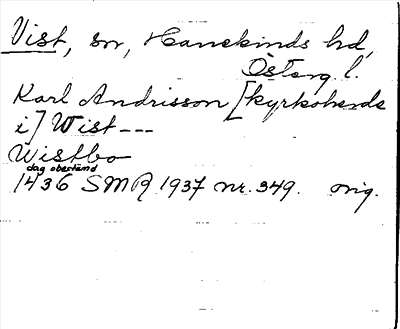 Vist, sn, Hanekinds hd,
Österg. l.
Karl Andrisson [kyrkoherde
i] Wist ---
Wistbo
dag obestämd
1436 SMR 1937 nr. 349. orig.